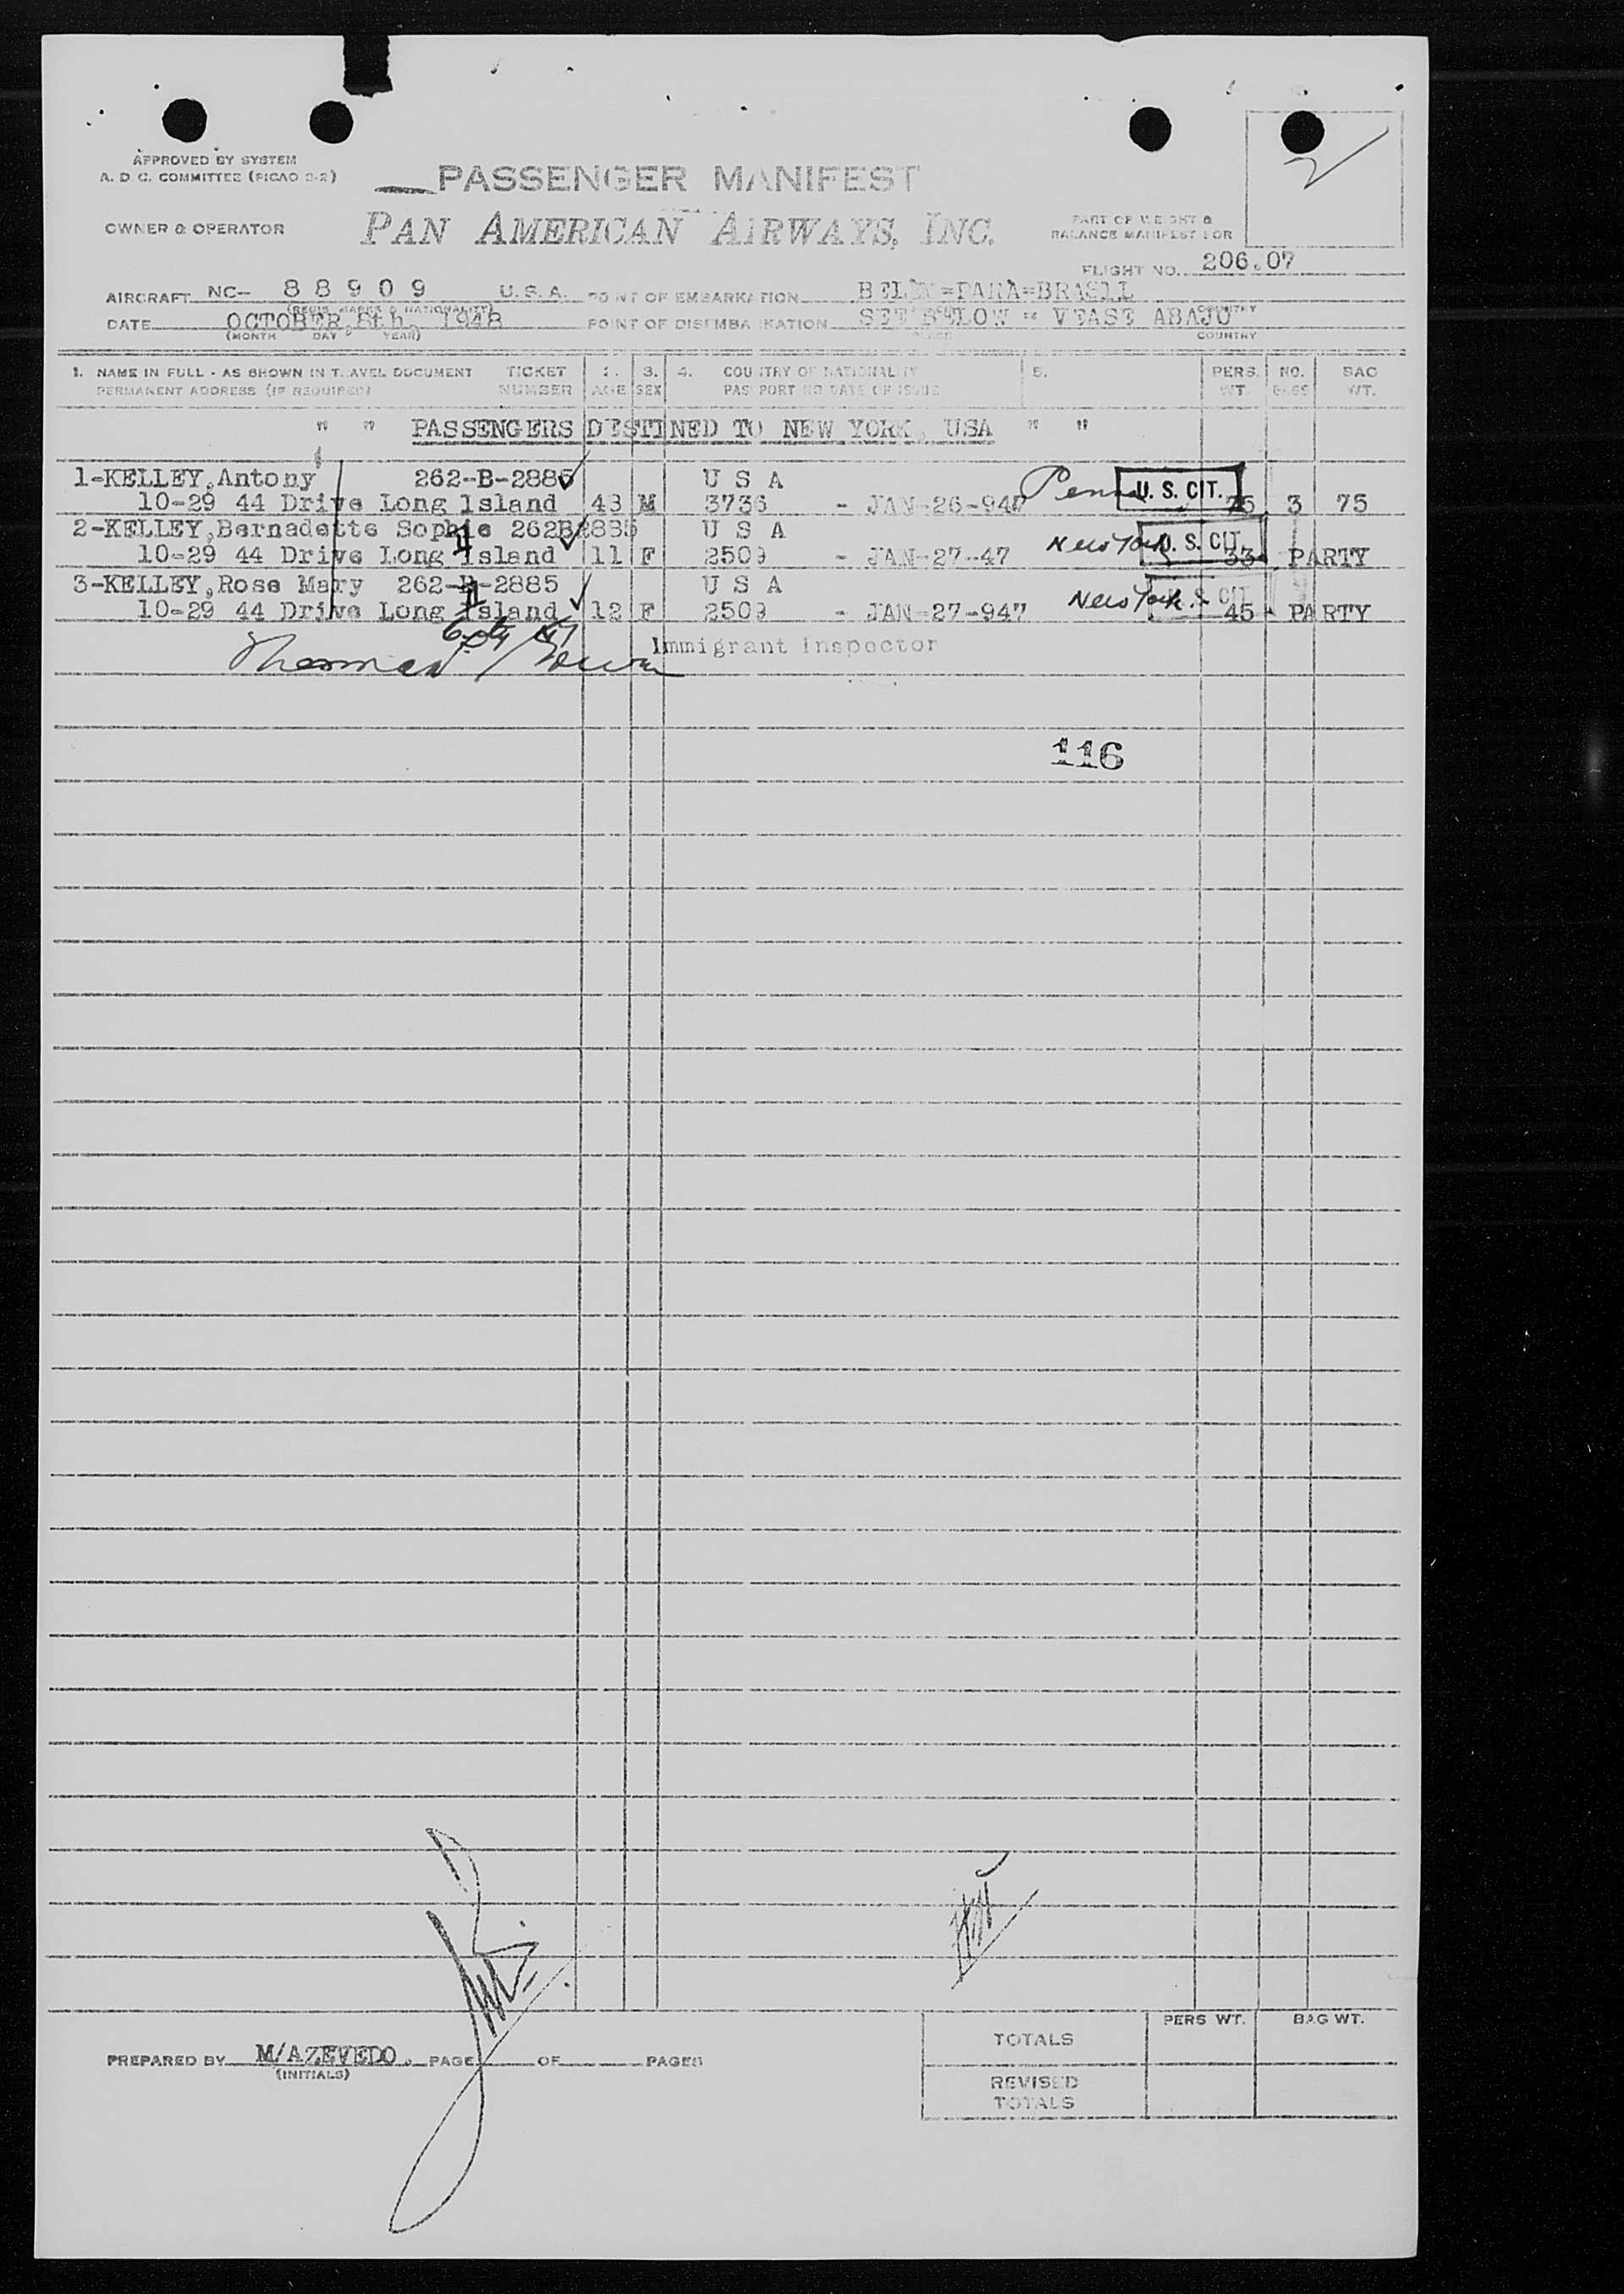 APPROVED BY SYSTEM
A. D. C. COMMITTEE (PICAO 3-2)
PASSENGER MANIFEST
OWNER & OPERATOR
PAN AMERICAN AIRWAYS, INC.
PART OF WEIGHT &
BALANCE MANIFEST FOR
FLIGHT NO. 206.07
AIRCRAFT NC- 88909 U.S.A. POINT OF EMBARKATION BELEM=PARA=BRASIL
(REGIS. MARKS & NATIONALITY) COUNTRY
DATE OCTOBER, 8th, 1948 POINT OF DISEMBARKATION SEE BELOW - VEASE ABAJO
(MONTH DAY YEAR) PLACE COUNTRY
1. NAME IN FULL - AS SHOWN IN TRAVEL DOCUMENT TICKET 2. 3. 4. COUNTRY OF NATIONALITY 5. PERS. NO. BAG
PERMANENT ADDRESS (IF REQUIRED) NUMBER AGE SEX PASSPORT NO DATE OF ISSUE WT. BAGS WT.
" " PASSENGERS DESTINED TO NEW YORK, USA " "
1-KELLEY,Antony 262-B-2885 U S A Penna U. S. CIT.
10-29 44 Drive Long Island 43 M 3736 - JAN-26-947 75 3 75
2-KELLEY,Bernadette Sophie 262B2885 U S A New York U. S. CIT.
10-29 44 Drive Long Island 11 F 2509 - JAN-27-47 33 PARTY
3-KELLEY,Rose Mary 262-B-2885 U S A New York U. S. CIT.
10-29 44 Drive Long Island 12 F 2509 - JAN-27-947 45 PARTY
Immigrant Inspector
116
PREPARED BY M/AZEVEDO. PAGE OF PAGES
(INITIALS)
PERS WT. BAG WT.
TOTALS
REVISED
TOTALS